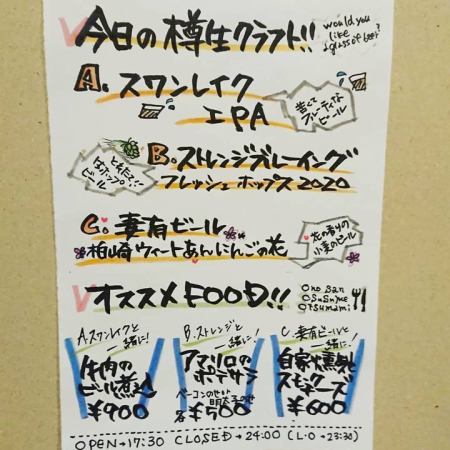 今日の樽生クラフト!!
would you
like
a glass of beer?
A. スワンレイク
IPA
苦くて
フルーティな
ビール
B. ストレンジブルーイング
フレッシュ ホップス 2020
とれたて!!
生ホップ
ビール
C. 妻有ビール
柏崎ウィートあんにんごの花
花の香りの
小麦のビール
オススメFOOD!!
Ono Ban
OSuSuMe
OTsuMami
A.スワンレイクと
一緒に!
牛肉の
ビール煮込み
¥900
B.ストレンジと
一緒に!
アブリロの
ポテサラ
ベーコンのせ
明太子のせ
各¥500
C.妻有ビールと
一緒に!
自家燻製
スモーク
チーズ
¥600
OPEN→17:30 CLOSED→24:00 (L.O→23:30)